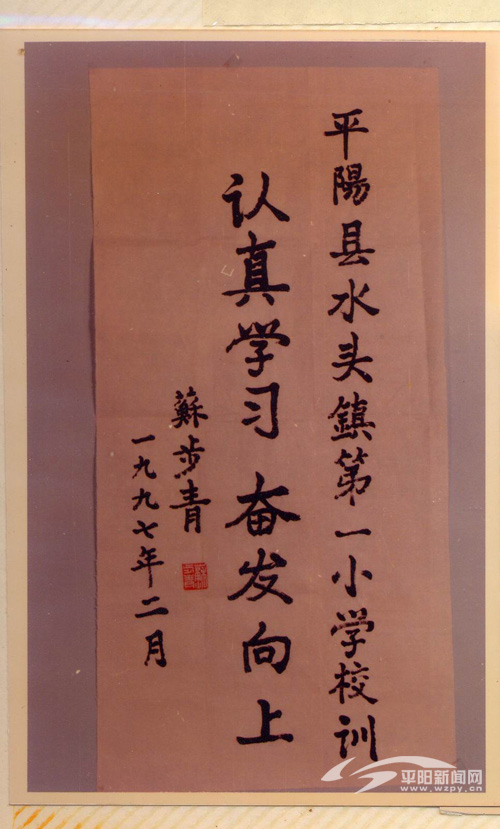 平陽县水头鎮第一小学校训
认真学习 奋发向上
蘇步青
一九九七年二月
平阳新闻网
www.wzpy.cn